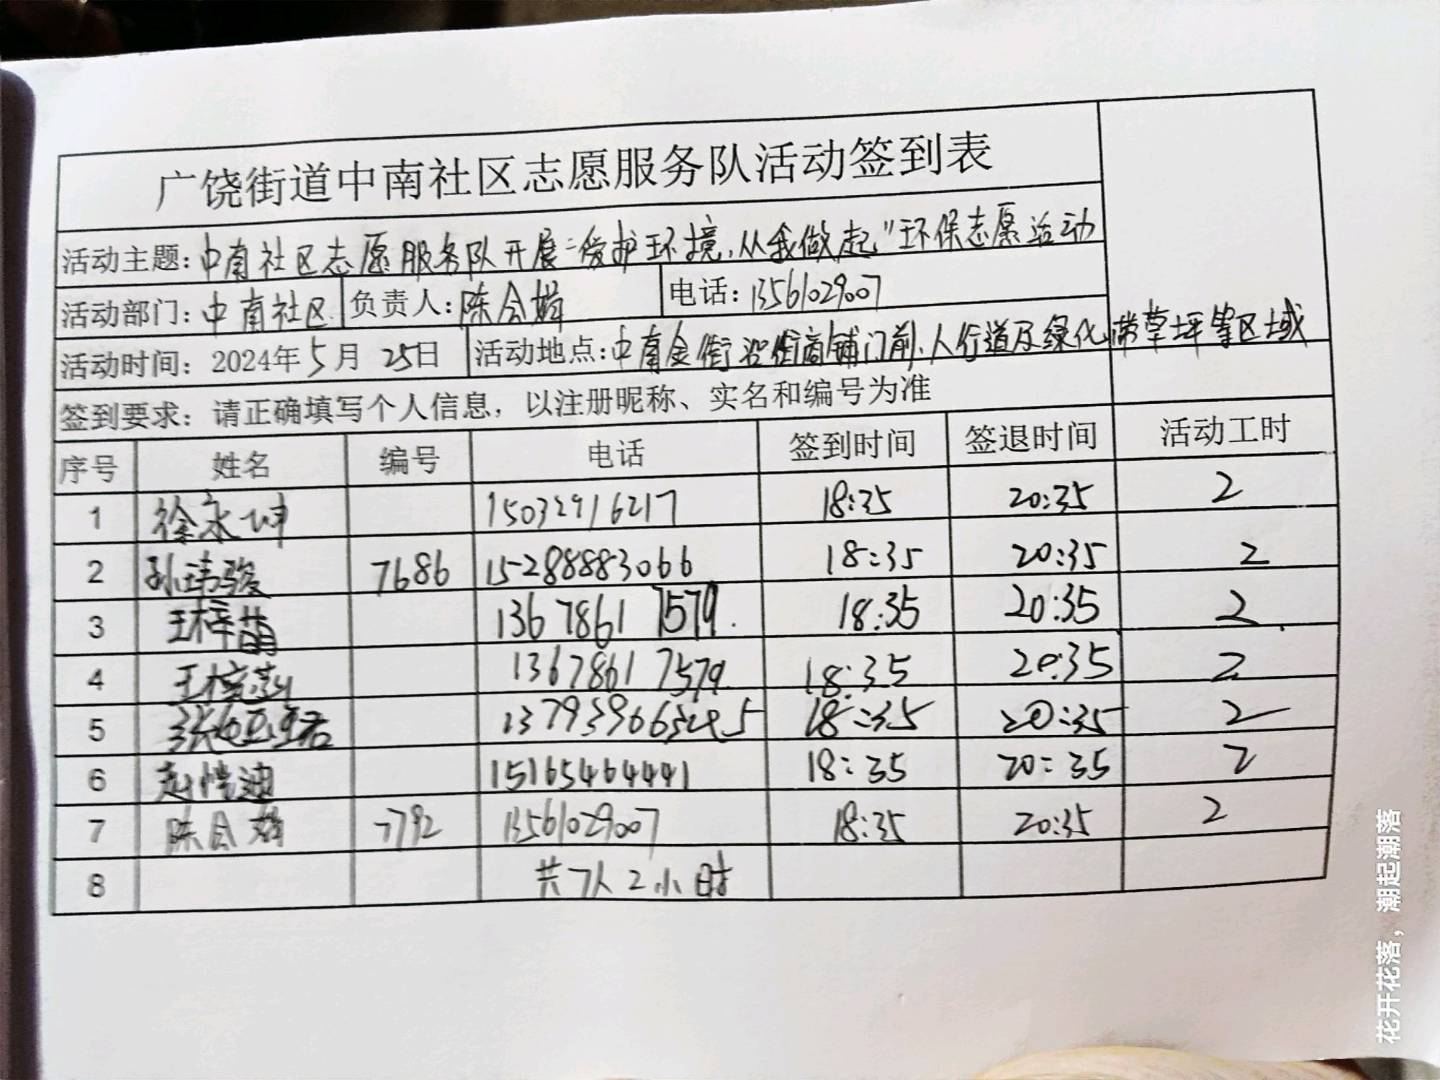 广饶街道中南社区志愿服务队活动签到表
活动主题：中南社区志愿服务队开展“爱护环境，从我做起”环保志愿活动
活动部门：中南社区 负责人：陈令 电话：13561029007
活动时间：2024年5月25日 活动地点：中南金街沿街商铺门前、人行道及绿化带草坪等区域
签到要求：请正确填写个人信息，以注册昵称、实名和编号为准
序号 姓名 编号 电话 签到时间 签退时间 活动工时
1 徐永坤 15032916217 18:35 20:35 2
2 孙玮骏 7686 15288883066 18:35 20:35 2
3 王梓萌 13678617579 18:35 20:35 2
4 王 13678617579 18:35 20:35 2
5 张 18:35 20:35 2
6 赵恺迪 15165464441 18:35 20:35 2
7 陈令 7792 13561029007 18:35 20:35 2
8 共7人2小时
花开花落，潮起潮落